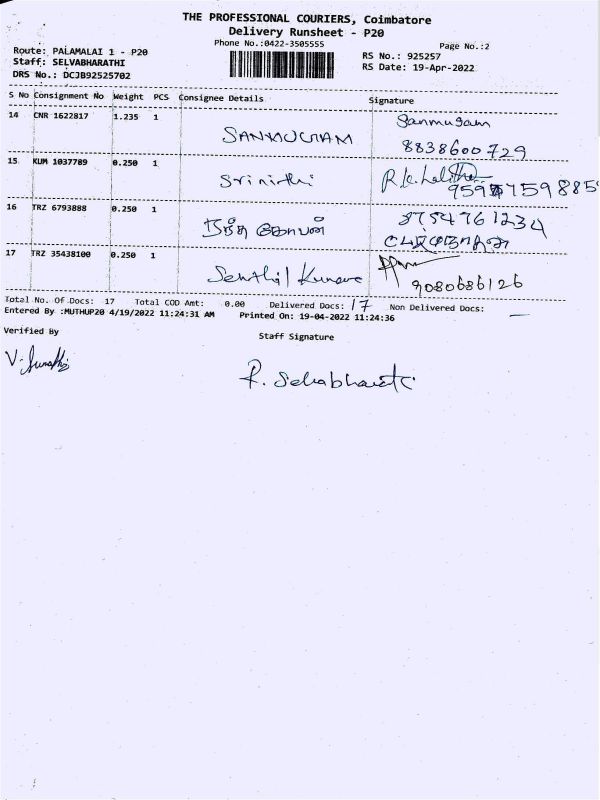 THE PROFESSIONAL COURIERS, Coimbatore
Delivery Runsheet - P20
Phone No.:0422-3505555
Page No.:2
Route: PALAMALAI 1 - P20
RS No.: 925257
Staff: SELVABHARATHI
RS Date: 19-Apr-2022
DRS No.: DCJB92525702
S No Consignment No Weight PCS Consignee Details Signature
14 CNR 1622817 1.235 1 SANMUGAM Sanmugam
8838600729
15 KUM 1037789 0.250 1 Srinithi R.K.Lalitha
16 TRZ 6793888 0.250 1 நந்த கோபன் 8754761234
17 TRZ 35438100 0.250 1 Senthil Kumar
9080686126
Total No. Of Docs: 17 Total COD Amt: 0.00 Delivered Docs: 17 Non Delivered Docs: —
Entered By :MUTHUP20 4/19/2022 11:24:31 AM Printed On: 19-04-2022 11:24:36
Verified By Staff Signature
R. Selvabharathi